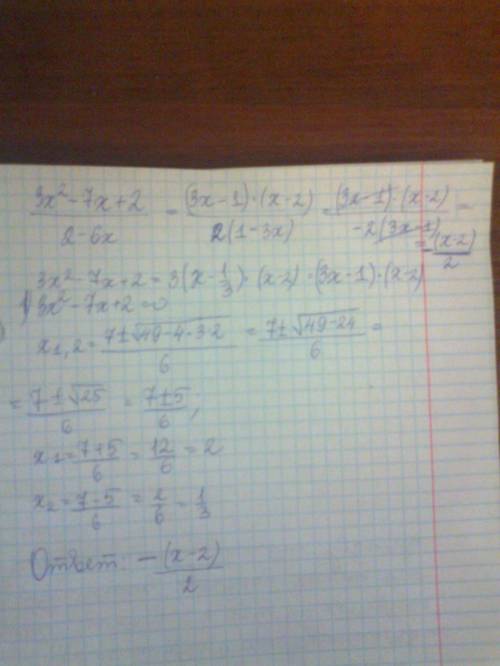 (3x² - 7x + 2)/(2 - 6x) = ((3x - 1)·(x - 2))/(2(1 - 3x)) = ((3x - 1)·(x - 2))/(-2(3x - 1)) =
= -(x - 2)/2
3x² - 7x + 2 = 3(x - 1/3)·(x - 2) = (3x - 1)·(x - 2)
3x² - 7x + 2 = 0
x1,2 = (7 ± √(49 - 4·3·2))/6 = (7 ± √(49 - 24))/6 =
= (7 ± √25)/6 = (7 ± 5)/6;
x1 = (7 + 5)/6 = 12/6 = 2
x2 = (7 - 5)/6 = 2/6 = 1/3
Ответ: -(x - 2)/2